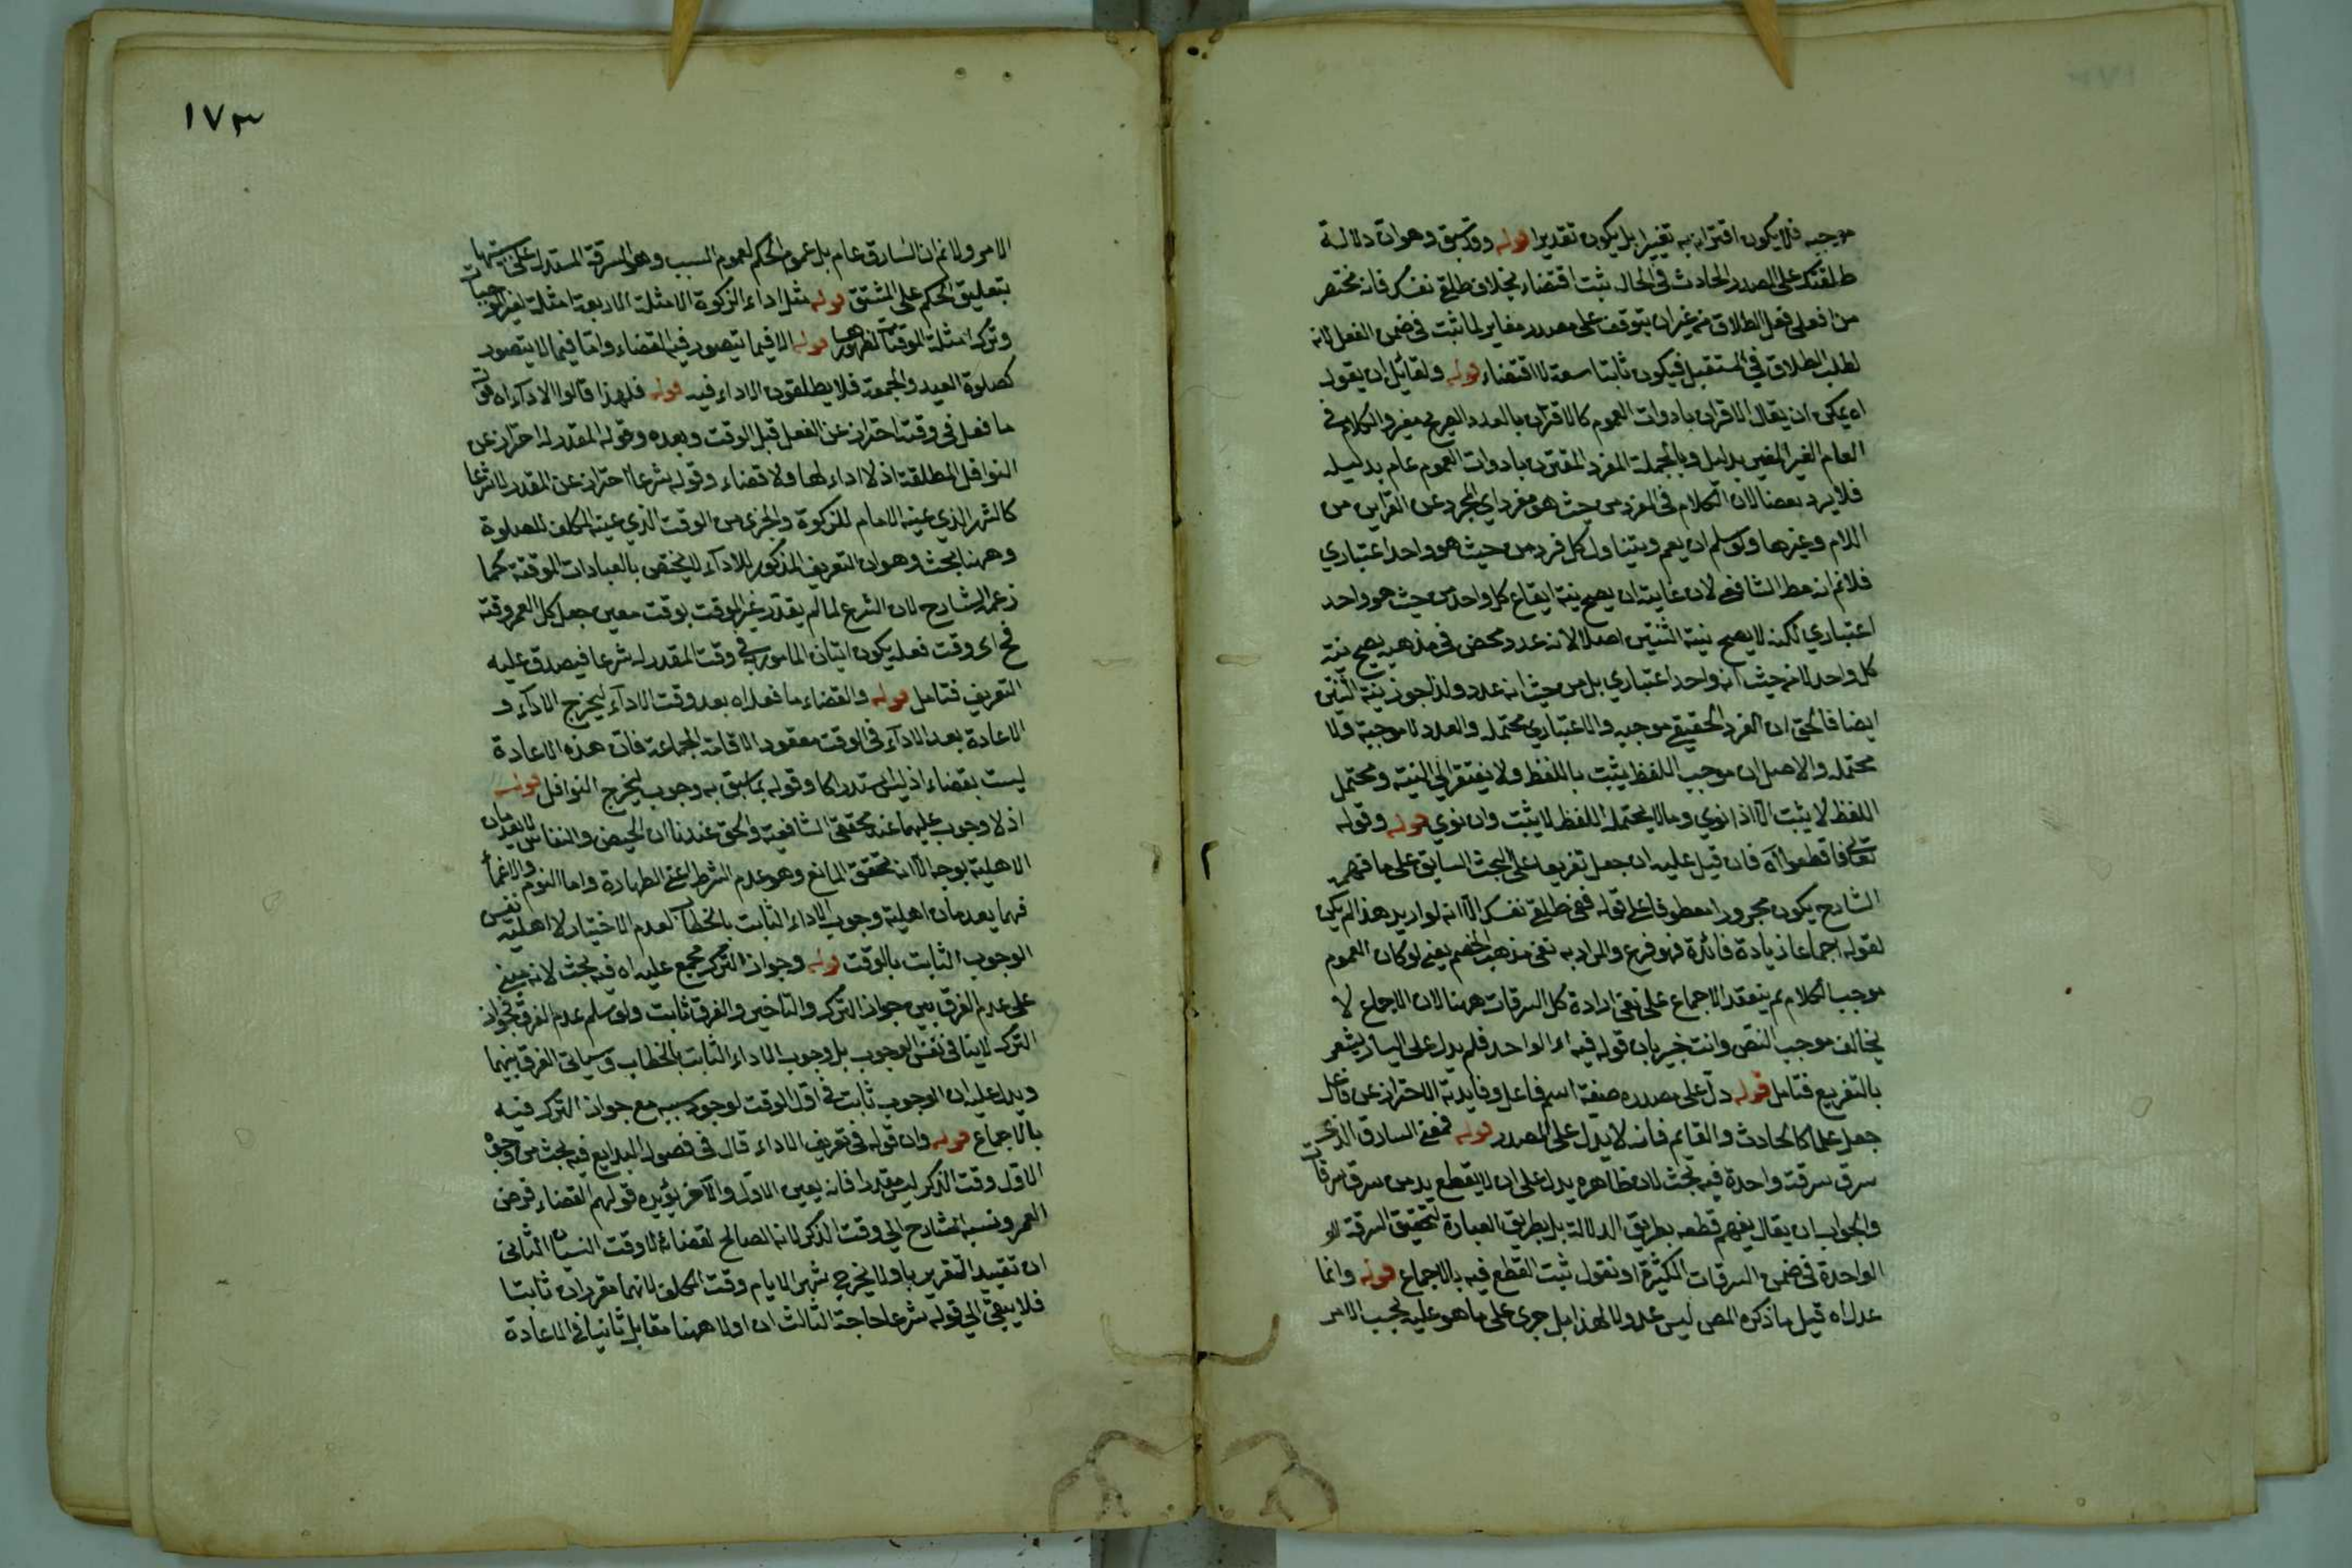 موجبه فلا يكون اقترانه به تغييرا بل يكون تقديرا قوله وقد سبق وهو ان دلالة
طلقتك على المصدر الحادث في الحال ثبت اقتضاء بخلاف طلقي نفسك فانه مختصر
من افعلي فعل الطلاق من غير ان يتوقف على مصدر مغاير لما ثبت في ضمن الفعل لانه
لطلب الطلاق في المستقبل فيكون ثابتا لغة لا اقتضاء قوله ولقائل ان يقول
اه يمكن ان يقال الاقتران بادوات العموم كالاقتران بالعدد الصريح مغير والكلام في
العام الغير المغير بدليل وبالجملة المفرد المقترن بادوات العموم عام بدليله
فلا يرد بعضا لان الكلام في المفرد من حيث هو مفرد اي المجرد عن القراين من
اللام وغيرها ولو سلم ان يعم ويتناول كل فرد من حيث هو واحد اعتباري
فلا نم انه مط الشافعي لان غايته ان يصح نية ايقاع كل واحد من حيث هو واحد
اعتباري لكنه لا يصح نية الثنتين اصلا لانه عدد محض في مذهبه يصح نية
كل واحد لا من حيث انه واحد اعتباري بل من حيث انه عدد ولذا جوز نية الثنتين
ايضا فالحق ان الفرد الحقيقي موجبه والاعتباري محتمله والعدد لا موجبه ولا
محتمله والاصل ان موجب اللفظ يثبت باللفظ ولا يفتقر الى النية ومحتمل
اللفظ لا يثبت الا اذا نوي وما لا يحتمله اللفظ لا يثبت وان نوي قوله وقوله
تعالى فاقطعوا اه فان قيل عليه ان جعل تفريعا على البحث السابق على ما فهمه
الشارح يكون مجرورا معطوفا على قوله ففي طلقي نفسك الا انه لو اريد هذا لم يكن
لقوله اجماعا زيادة فائدة فهو فرع والمراد به نفي مذهب الخصم يعني لو كان العموم
موجب الكلام لم ينعقد الاجماع على نفي ارادة كل السرقات ههنا لان الاجماع لا
يخالف موجب النص وانت خبير بان قوله فيه اه الواحد فلم يدل على اليسار يشعر
بالتفريع فتامل قوله دل على مصدره صفة اسم فاعل وفايدته الاحتراز عن فاعل
جعل علما كالحادث والقايم فانه لا يدل على المصدر قوله فمعنى السارق الذي
سرق سرقة واحدة فيه بحث لان ظاهره يدل على ان لا يقطع يد من سرق سرقات
والجواب ان يقال يفهم قطعه بطريق الدلالة بل بطريق العبارة لتحقيق السرقة
الواحدة في ضمن السرقات الكثيرة او نقول ثبت القطع فيه بالاجماع قوله وانما
عدل اه قيل ما ذكره المص ليس عدولا لهذا بل جرى على ما هو عليه بحسب الامر
١٧٣
الامر ولا نم ان السارق عام بل عموم الحكم لعموم السبب وهو السرقة المستدل على سببيتها
بتعليق الحكم على المشتق قوله مثل اداء الزكوة الامثلة الاربعة امثلة لغير الموقتات
وترك امثلة الموقتة لظهورها قوله الا فيما يتصور فيه القضاء واما فيما لا يتصور
كصلوة العيد والجمعة فلا يطلقون الاداء فيه قوله فلهذا قالوا الاداء اه قوله
ما فعل في وقته احتراز عن الفعل قبل الوقت وبعده وقوله المقدر له احتراز عن
النوافل المطلقة اذ لا اداء لها ولا قضاء وقوله شرعا احتراز عن المقدر لا شرعا
كالشهر الذي عينه الامام للزكوة والجزء من الوقت الذي عينه المكلف للصلوة
وههنا بحث وهو ان التعريف المذكور للاداء لا يختص بالعبادات الموقتة كما
زعمه الشارح لان الشرع لما لم يقدر غير الموقت بوقت معين جعل كل العمر وقته
فح اى وقت فعله يكون اتيان المامور في وقت المقدر له شرعا فيصدق عليه
التعريف فتامل قوله والقضاء ما فعل اه بعد وقت الاداء ليخرج الاداء و
الاعادة بعد الاداء في الوقت معقود لاقامة الجماعة فان هذه الاعادة
ليست بقضاء اذ ليس استدراكا وقوله بما سبق به وجوب ليخرج النوافل قوله
اذ لا وجوب عليهما عند محققي الشافعية والحق عندنا ان الحيض والنفاس لا يعدمان
الاهلية بوجه الا انه تحقق المانع وهو عدم الشرط اعني الطهارة واما النوم والاغماء
فهما يعدمان اهلية وجوب الاداء الثابت بالخطاب لعدم الاختيار لا اهلية نفس
الوجوب الثابت بالوقت قوله وجواز الترك مجمع عليه اه فيه بحث لانه مبني
على عدم الفرق بين جواز الترك والتاخير والفرق ثابت ولو سلم عدم الفرق فجواز
الترك لا ينافي نفس الوجوب بل وجوب الاداء الثابت بالخطاب وسياتي الفرق بينهما
ويدل عليه ان الوجوب ثابت في اول الوقت لوجود سببه مع جواز الترك فيه
بالاجماع قوله وان قوله في تعريف الاداء قال في فصول البدايع فيه بحث من وجوه
الاول وقت الذكر ليس مقدرا فانه يعين الاول والآخر يؤيده قولهم القضاء فرض
العمر ونسبه الشارح الى وقت الذكر لانه الصالح لقضائه لا وقت النسيان الثاني
ان تقييد التقرير باولا يخرج شهر الامام وقت المكلف لانهما مقرران ثابتا
فلا يبقى الى قوله شرعا حاجة الثالث ان اولا ههنا مقابل ثانيا في الاعادة